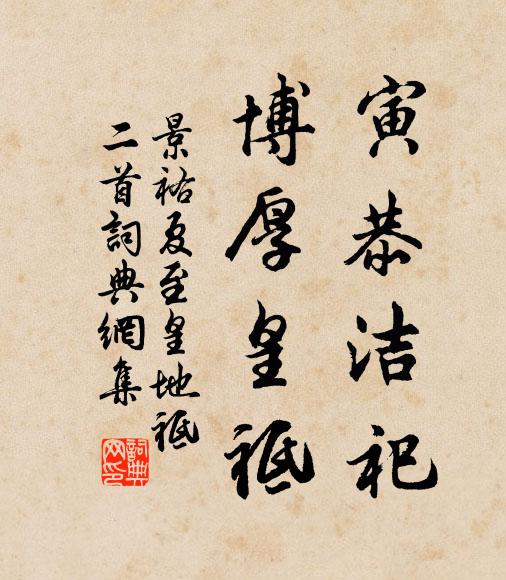 寅恭洁祀
博厚皇祇
景祐夏至皇地祇
二首詞典網集
詞典
网印